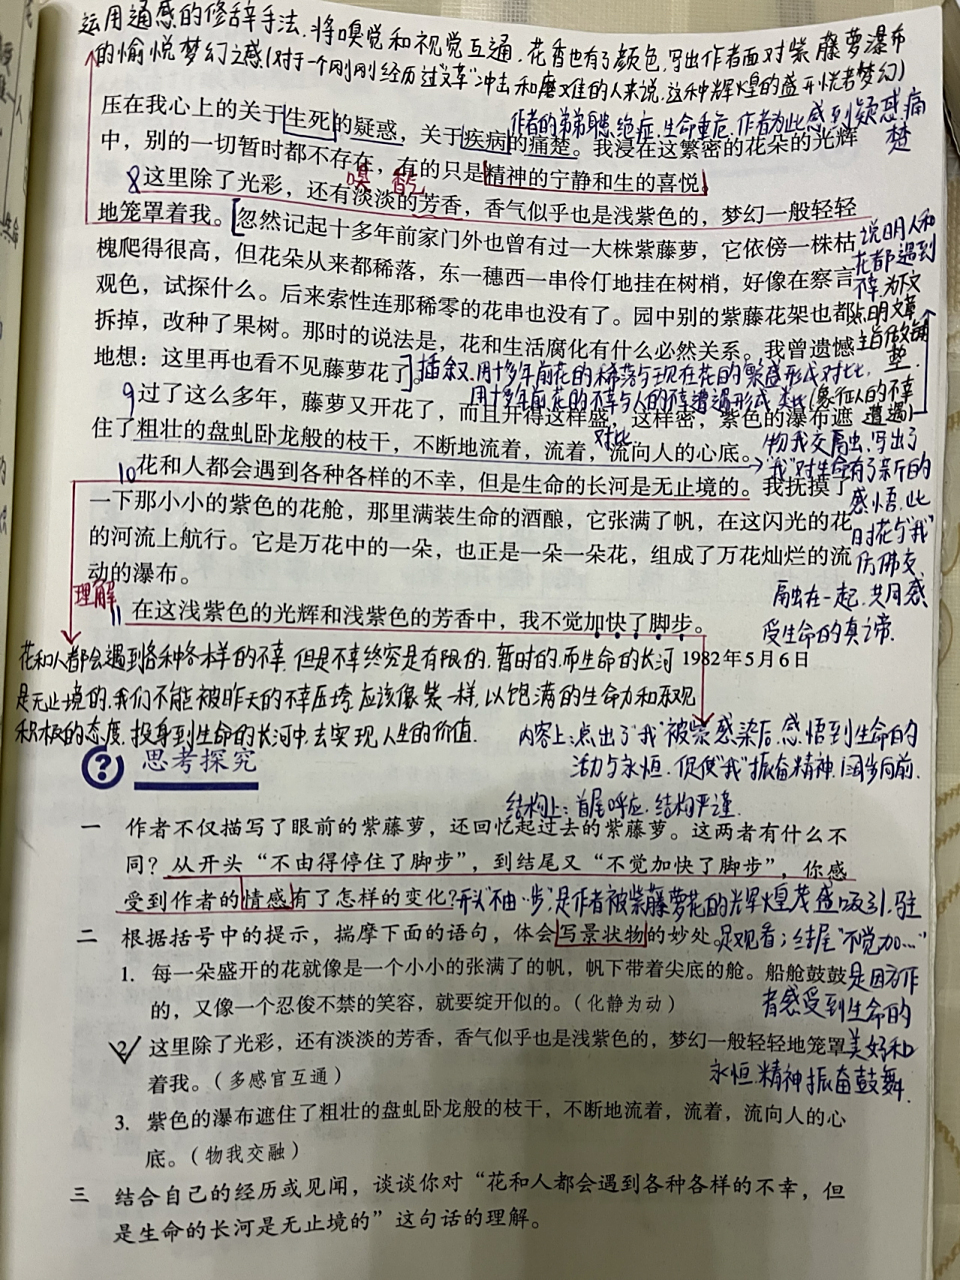 运用通感的修辞手法,将嗅觉和视觉互通,花香也有了颜色,写出作者面对紫藤萝瀑布
的愉悦梦幻之感(对于一个刚刚经历过"文革"冲击和磨难的人来说,这种辉煌的盛开恍若梦幻)
压在我心上的关于生死的疑惑，关于疾病的痛楚。我浸在这繁密的花朵的光辉
作者的弟弟患绝症,生命垂危,作者为此感到疑惑痛
楚
中，别的一切暂时都不存在，有的只是精神的宁静和生的喜悦。
嗅觉
8这里除了光彩，还有淡淡的芳香，香气似乎也是浅紫色的，梦幻一般轻轻
地笼罩着我。[忽然记起十多年前家门外也曾有过一大株紫藤萝，它依傍一株枯
槐爬得很高，但花朵从来都稀落，东一穗西一串伶仃地挂在树梢，好像在察言
观色，试探什么。后来索性连那稀零的花串也没有了。园中别的紫藤花架也都
拆掉，改种了果树。那时的说法是，花和生活腐化有什么必然关系。我曾遗憾
地想：这里再也看不见藤萝花了。]
说明人和
花都遇到
不幸,为下文
点明文章
主旨做铺
垫.
插叙.用十多年前花的稀落与现在花的繁盛形成对比,
用十多年前花的不幸与人的不幸遭遇形成类比(象征人的不幸
遭遇)
9过了这么多年，藤萝又开花了，而且开得这样盛，这样密，紫色的瀑布遮
住了粗壮的盘虬卧龙般的枝干，不断地流着，流着，流向人的心底。
对比
物我交融,写出了
"我"对生命有了新的
感悟,此
时花与"我"
仿佛交
融在一起.共同感
受生命的真谛.
10花和人都会遇到各种各样的不幸，但是生命的长河是无止境的。我抚摸了
一下那小小的紫色的花舱，那里满装生命的酒酿，它张满了帆，在这闪光的花
的河流上航行。它是万花中的一朵，也正是一朵一朵花，组成了万花灿烂的流
动的瀑布。
理解
11在这浅紫色的光辉和浅紫色的芳香中，我不觉加快了脚步。
1982年5月6日
花和人都会遇到各种各样的不幸,但是不幸终究是有限的,暂时的,而生命的长河
是无止境的.我们不能被昨天的不幸压垮,应该像紫一样,以饱满的生命力和乐观
积极的态度,投身到生命的长河中,去实现人生的价值.
内容上:点出了"我"被紫感染后,感悟到生命的
活力与永恒.促使"我"振奋精神,阔步向前.
结构上:首尾呼应,结构严谨.
思考探究
一 作者不仅描写了眼前的紫藤萝，还回忆起过去的紫藤萝。这两者有什么不
同？从开头“不由得停住了脚步”，到结尾又“不觉加快了脚步”，你感
受到作者的情感有了怎样的变化？
开头"不由…步"是作者被紫藤萝花的光辉煌茂盛吸引,驻
足观看;结尾"不觉加……"
是因为作
者感受到生命的
美好和
永恒.精神振奋鼓舞.
二 根据括号中的提示，揣摩下面的语句，体会写景状物的妙处。
1. 每一朵盛开的花就像是一个小小的张满了的帆，帆下带着尖底的舱。船舱鼓鼓
的，又像一个忍俊不禁的笑容，就要绽开似的。（化静为动）
2. 这里除了光彩，还有淡淡的芳香，香气似乎也是浅紫色的，梦幻一般轻轻地笼罩
着我。（多感官互通）
3. 紫色的瀑布遮住了粗壮的盘虬卧龙般的枝干，不断地流着，流着，流向人的心
底。（物我交融）
三 结合自己的经历或见闻，谈谈你对“花和人都会遇到各种各样的不幸，但
是生命的长河是无止境的”这句话的理解。